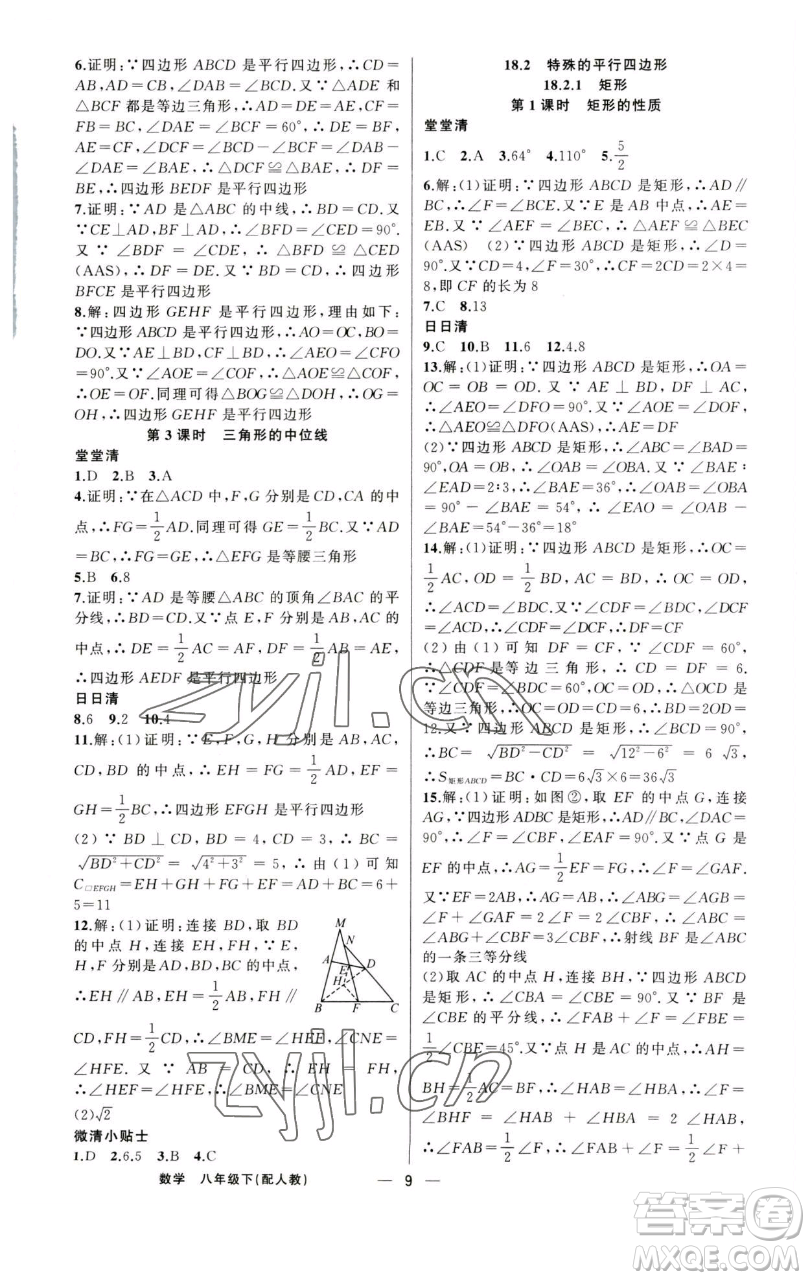 6.证明:∵四边形 ABCD 是平行四边形,∴CD=
AB,AD=CB,∠DAB=∠DCB.又∵△ADE 和
△FBC 都是等边三角形,∴AD=DE=AE,CF=
FB=BC,∠DAE=∠BCF=60°,∴DE=BF,
AE=CF,∴∠DCF=∠DCB-∠BCF=∠DAB
-∠DAE=∠BAE,∴△DCF≌△BAE,∴DF=
BE,∴四边形 BEDF 是平行四边形
7.证明:∵AD 是△ABC 的中线,∴BD=CD.又
∵CE⊥AD,BF⊥AD,∴∠BFD=∠CED=90°.
又∵∠BDF=∠CDE,∴△BFD≌△CED
(AAS),∴DF=DE.又∵BD=CD,∴四边形
BFCE 是平行四边形
8.解:四边形 GEHF 是平行四边形,理由如下:
∵四边形 ABCD 是平行四边形,∴AO=OC,BO=
DO.又∵AE⊥BD,CF⊥BD,∴∠AEO=∠CFO
=90°.又∵∠AOE=∠COF,∴△AOE≌△COF,
∴OE=OF.同理可得△BOG≌△DOH,∴OG=
OH,∴四边形 GEHF 是平行四边形
第3课时 三角形的中位线
堂堂清
1.D 2.B 3.A
4.证明:∵在△ACD 中,F,G 分别是 CD,CA 的中
点,∴FG=1/2AD.同理可得 GE=1/2BC.又∵AD
=BC,∴FG=GE,∴△EFG 是等腰三角形
5.B 6.8
7.证明:∵AD 是等腰△ABC 的顶角∠BAC 的平
分线,∴BD=CD.又∵点 E,F 分别是 AB,AC 的
中点,∴DE=1/2AC=AF,DF=1/2AB=AE,
∴四边形 AEDF 是平行四边形
日日清
8.6 9.2 10.4
11.解:(1)证明:∵E,F,G,H 分别是 AB,AC,
CD,BD 的中点,∴EH=FG=1/2AD,EF=
GH=1/2BC,∴四边形 EFGH 是平行四边形
(2)∵BD⊥CD,BD=4,CD=3,∴BC=
√(BD²+CD²)=√(4²+3²)=5,∴由(1)可知
C▱EFGH=EH+GH+FG+EF=AD+BC=6+
5=11
12.解:(1)证明:连接 BD,取 BD
的中点 H,连接 EH,FH,∵E,
F 分别是 AD,BC 的中点,
∴EH∥AB,EH=1/2AB,FH∥
CD,FH=1/2CD,∴∠BME=∠HEF,∠CNE=
∠HFE.又∵AB=CD,∴EH=FH,
∴∠HEF=∠HFE,∴∠BME=∠CNE
(2)√2
M
N
A
E
D
H
B
F
C
微清小贴士
1.D 2.6.5 3.B 4.C
18.2 特殊的平行四边形
18.2.1 矩形
第1课时 矩形的性质
堂堂清
1.C 2.A 3.64° 4.110° 5.5/2
6.解:(1)证明:∵四边形 ABCD 是矩形,∴AD∥
BC,∴∠F=∠BCE.又∵E 是 AB 中点,∴AE=
EB.又∵∠AEF=∠BEC,∴△AEF≌△BEC
(AAS) (2)∵四边形 ABCD 是矩形,∴∠D=
90°.又∵CD=4,∠F=30°,∴CF=2CD=2×4=
8,即 CF 的长为 8
7.C 8.13
日日清
9.C 10.B 11.6 12.4.8
13.解:(1)证明:∵四边形 ABCD 是矩形,∴OA=
OC=OB=OD.又∵AE⊥BD,DF⊥AC,
∴∠AEO=∠DFO=90°.又∵∠AOE=∠DOF,
∴△AEO≌△DFO(AAS),∴AE=DF
(2)∵四边形 ABCD 是矩形,∴∠BAD=
90°,OA=OB,∴∠OAB=∠OBA.又∵∠BAE∶
∠EAD=2∶3,∴∠BAE=36°,∴∠OAB=∠OBA
=90°-∠BAE=54°,∴∠EAO=∠OAB-
∠BAE=54°-36°=18°
14.解:(1)证明:∵四边形 ABCD 是矩形,∴OC=
1/2AC,OD=1/2BD,AC=BD,∴OC=OD,
∴∠ACD=∠BDC.又∵∠CDF=∠BDC,∠DCF
=∠ACD,∴∠CDF=∠DCF,∴DF=CF
(2)由(1)可知 DF=CF,∵∠CDF=60°,
∴△CDF 是等边三角形,∴CD=DF=6.
∵∠CDF=∠BDC=60°,OC=OD,∴△OCD 是
等边三角形,∴OC=OD=CD=6,∴BD=2OD=
12.又∵四边形 ABCD 是矩形,∴∠BCD=90°,
∴BC=√(BD²-CD²)=√(12²-6²)=6√3,
∴S矩形ABCD=BC·CD=6√3×6=36√3
15.解:(1)证明:如图②,取 EF 的中点 G,连接
AG,∵四边形 ADBC 是矩形,∴AD∥BC,∠DAC=
90°,∴∠F=∠CBF,∠EAF=90°.又∵点 G 是
EF 的中点,∴AG=1/2EF=FG,∴∠F=∠GAF.又
∵EF=2AB,∴AG=AB,∴∠ABG=∠AGB=
∠F+∠GAF=2∠F=2∠CBF,∴∠ABC=
∠ABG+∠CBF=3∠CBF,∴射线 BF 是∠ABC
的一条三等分线
(2)取 AC 的中点 H,连接 BH,∵四边形 ABCD
是矩形,∴∠ABC=∠CBE=90°.又∵BF 是
∠CBE 的平分线,∴∠FAB+∠F=∠FBE=
1/2∠CBE=45°.又∵点 H 是 AC 的中点,∴AH=
BH=1/2AC=BF,∴∠HAB=∠HBA,∠F=
∠BHF=∠HAB+∠HBA=2∠HAB,
∴∠HAB=1/2∠F,∴∠FAB+∠F=1/2∠F+
数学 八年级下(配人教)
— 9 —
zyjl.cn
zyjl.cn
答案圈
MXQE.COM